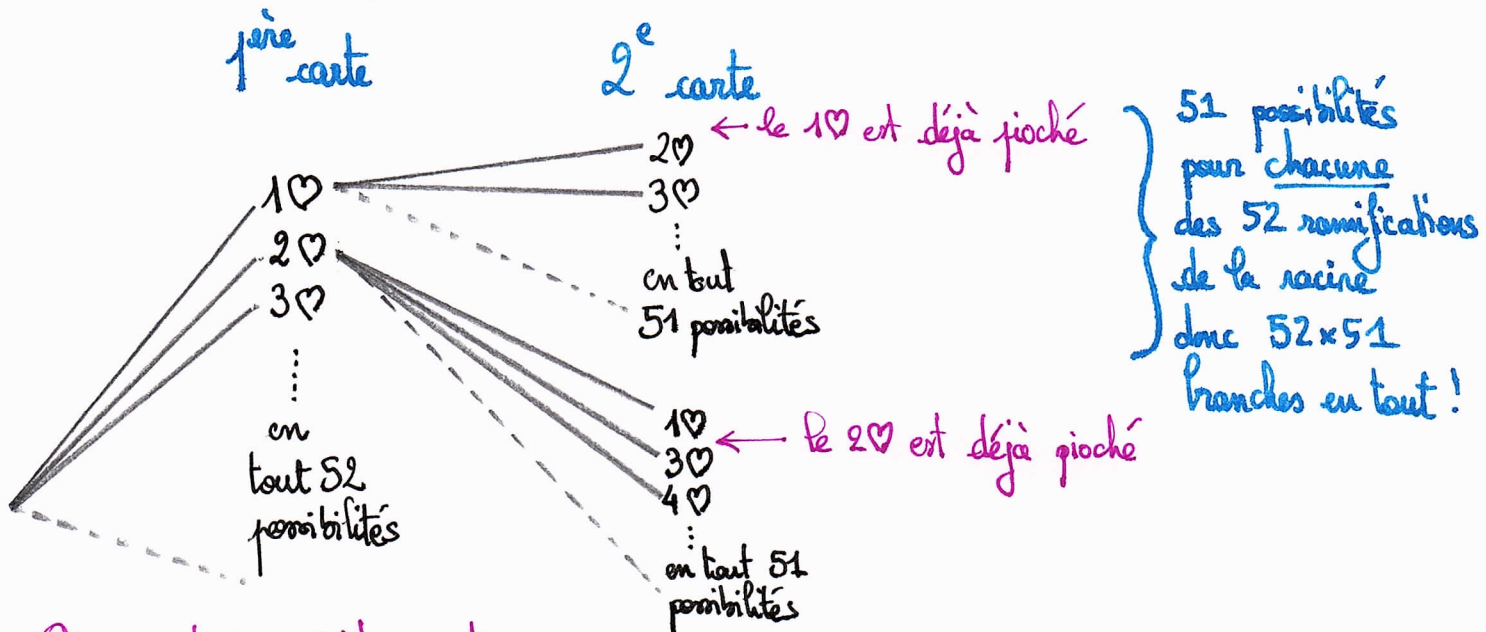 1ère carte
2e carte
1♡
2♡
3♡
en
tout 52
possibilités
2♡
← le 1♡ est déjà pioché
3♡
en tout
51 possibilités
1♡
3♡
← le 2♡ est déjà pioché
4♡
en tout 51
possibilités
51 possibilités
pour chacune
des 52 ramifications
de la racine
donc 52×51
branches en tout !